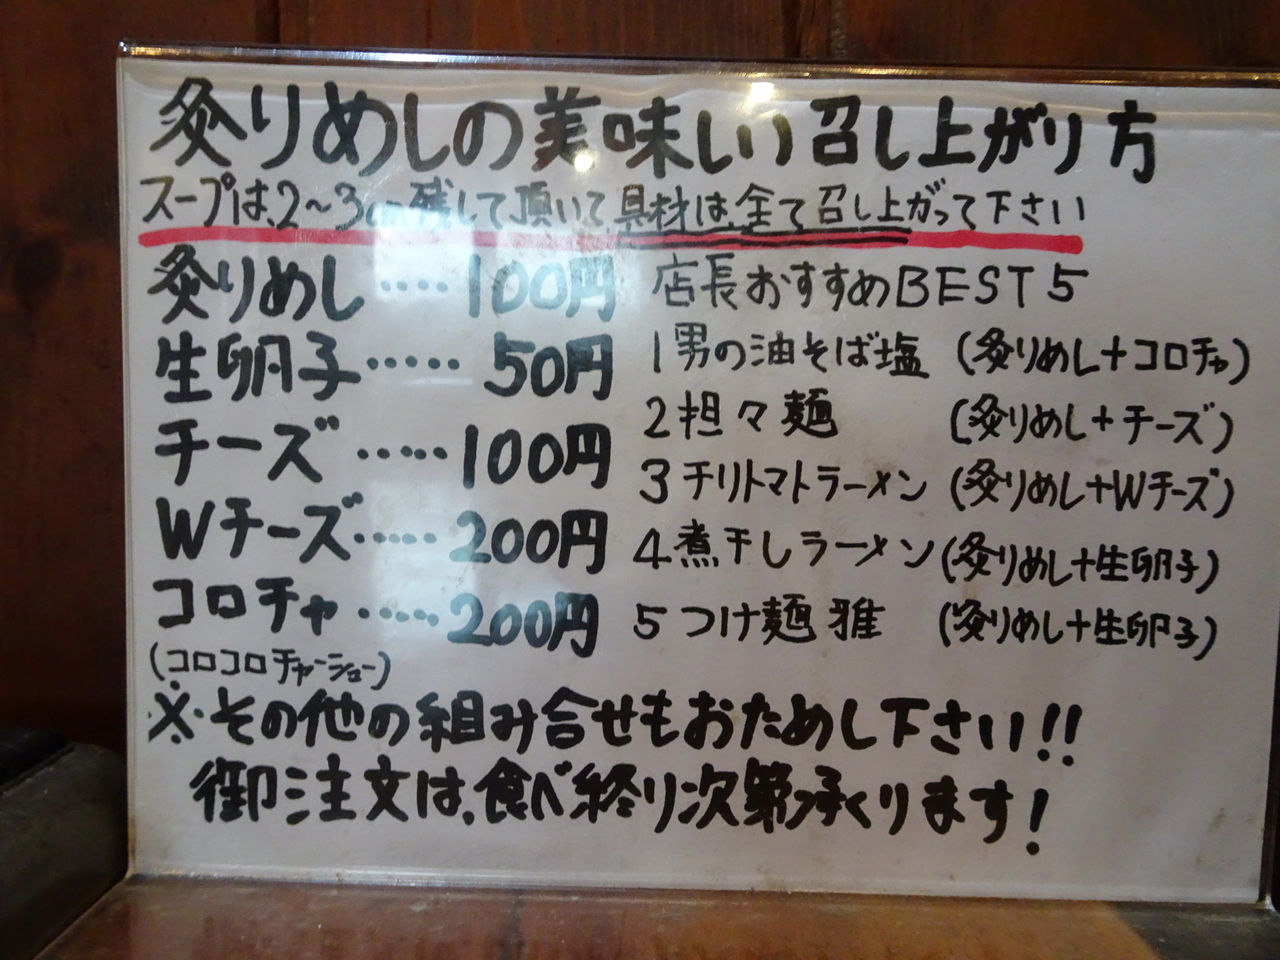 炙りめしの美味しい召し上がり方
スープは、2〜3cm残して頂いて、具材は、全て召し上がって下さい
炙りめし‥‥100円
生卵子‥‥‥50円
チーズ‥‥‥100円
Wチーズ‥‥‥200円
コロチャ‥‥‥200円
(コロコロチャーシュー)
店長おすすめBEST5
1 男の油そば塩 (炙りめし+コロチャ)
2 担々麺 (炙りめし+チーズ)
3 チリトマトラーメン (炙りめし+Wチーズ)
4 煮干しラーメン (炙りめし+生卵子)
5 つけ麺 雅 (炙りめし+生卵子)
※その他の組み合せもおためし下さい!!
御注文は、食べ終り次第承くります!